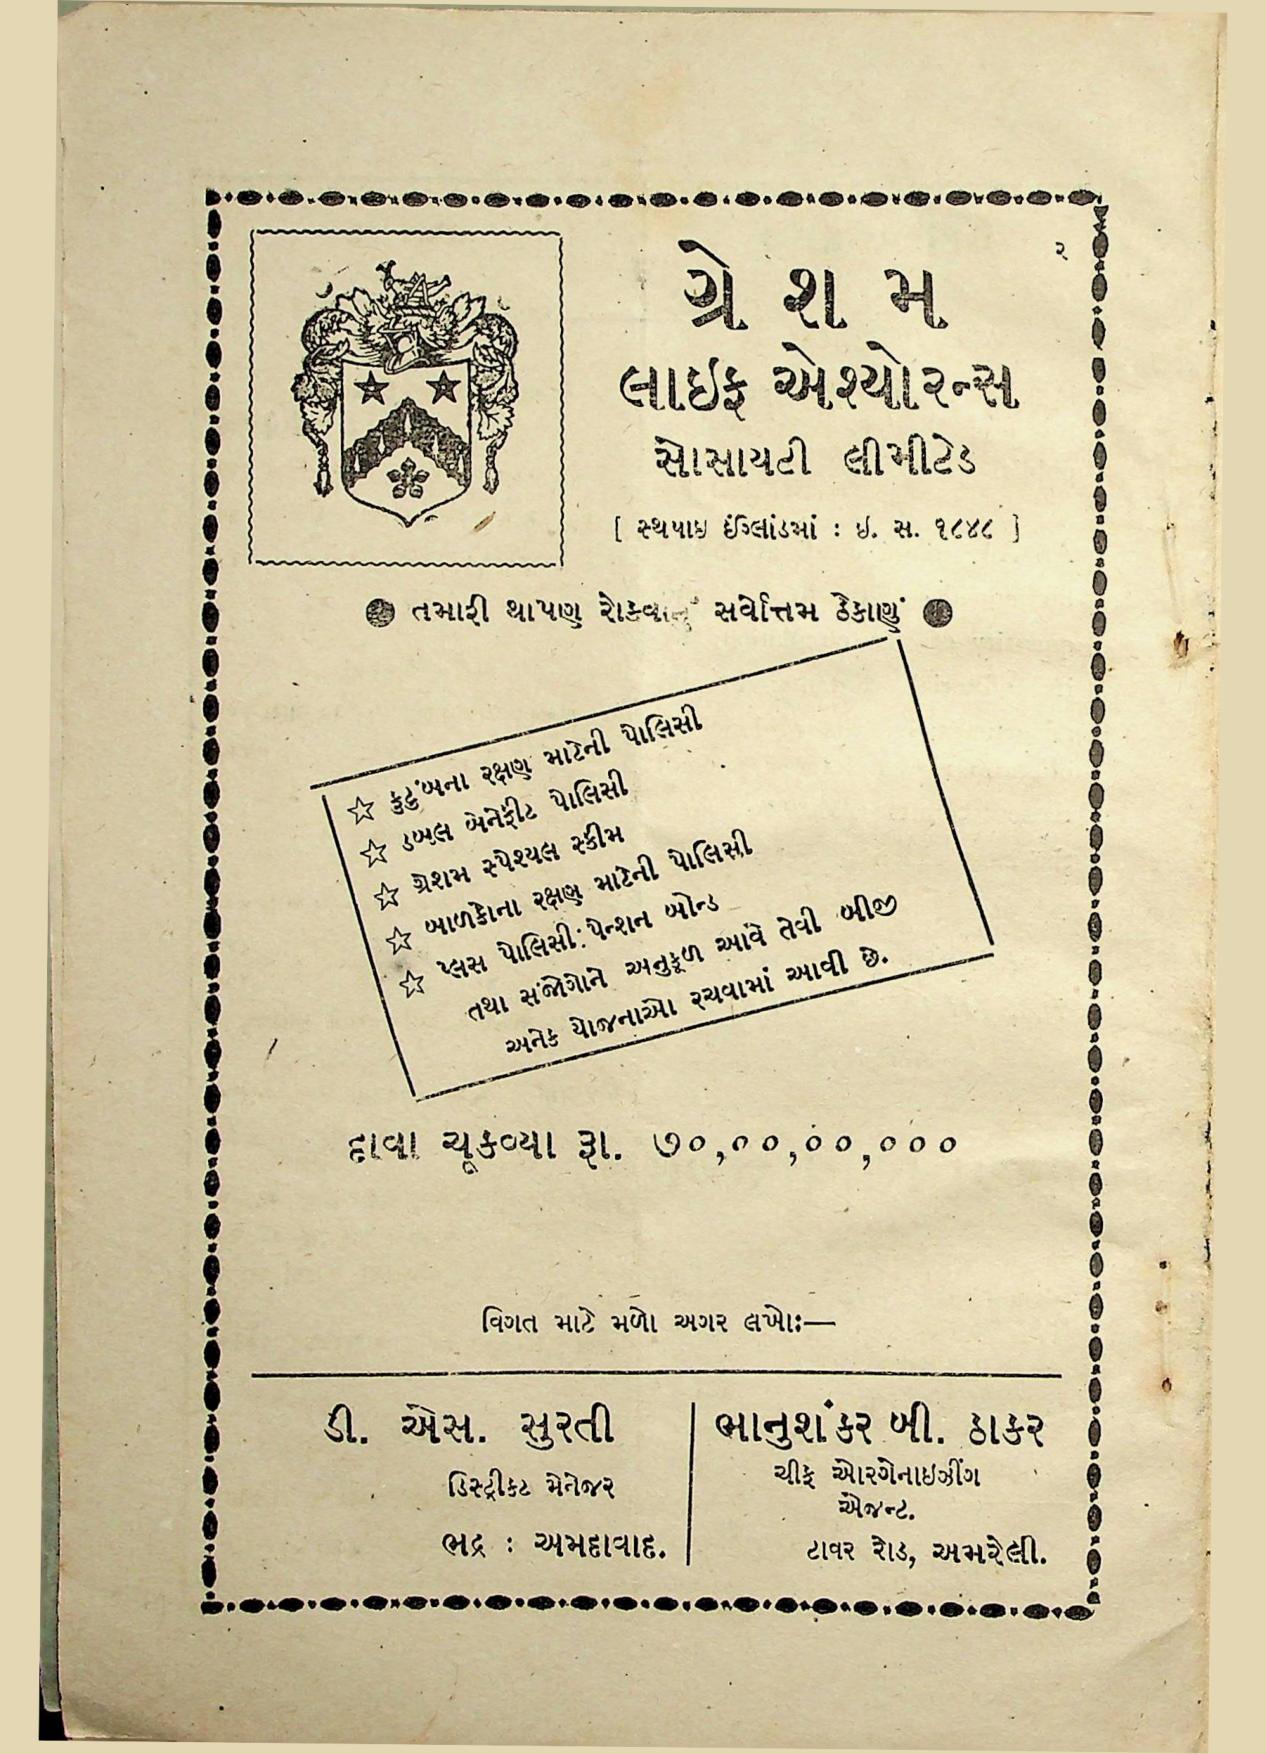 ૨
ગ્રેશમ
લાઇફ એશ્યોરન્સ
સોસાયટી લીમીટેડ
[ સ્થપાઇ ઈંગ્લાંડમાં : ઇ. સ. ૧૮૪૮ ]
તમારી થાપણ રોકવાનું સર્વોત્તમ ઠેકાણું
☆ કુટુંબના રક્ષણ માટેની પોલિસી
☆ ડબલ બેનેફીટ પોલિસી
☆ ગ્રેશમ સ્પેશ્યલ સ્કીમ
☆ બાળકોના રક્ષણ માટેની પોલિસી
☆ પ્લસ પોલિસી: પેન્શન બોન્ડ
તથા સંજોગોને અનુકૂળ આવે તેવી બીજી
અનેક યોજનાઓ રચવામાં આવી છે.
દાવા ચૂકવ્યા રૂા. ૭૦,૦૦,૦૦,૦૦૦
વિગત માટે મળો અગર લખો:—
ડી. એસ. સુરતી
ડિસ્ટ્રીકટ મેનેજર
ભદ્ર : અમદાવાદ.
ભાનુશંકર બી. ઠાકર
ચીફ ઓરગેનાઇઝીંગ
એજન્ટ.
ટાવર રોડ, અમરેલી.